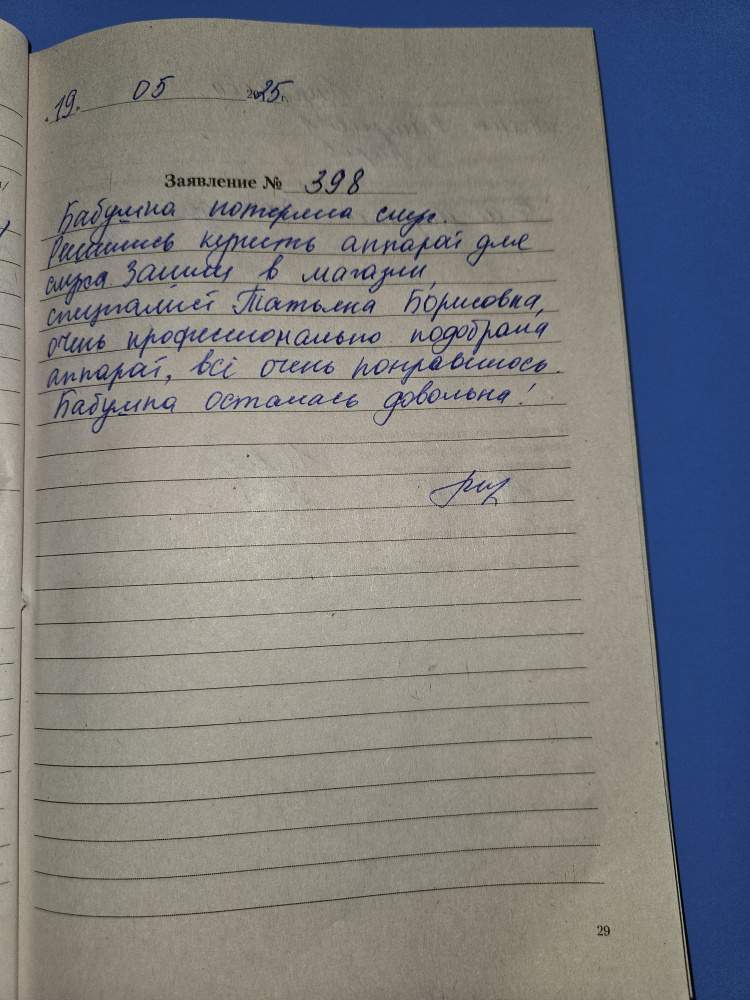 19. 05 2025г.
Заявление № 398
Бабушка потеряла слух.
Решились купить аппарат для
слуха Зашли в магазин,
специалист Татьяна Борисовна,
очень профессионально подобрала
аппарат, всё очень понравилось.
Бабушка осталась довольна!
29